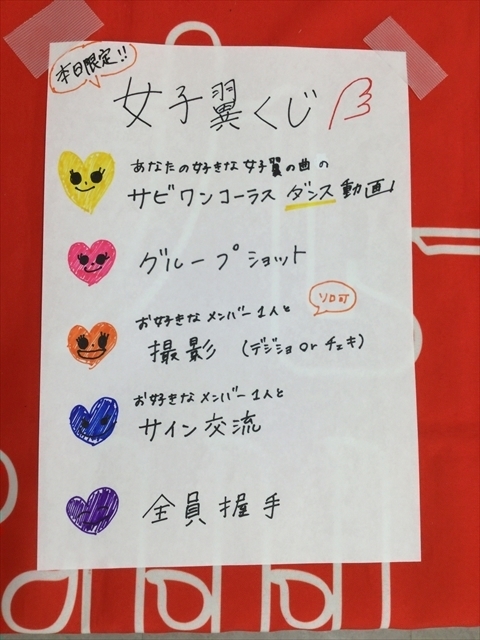 本日限定!!
女子翼くじ
あなたの好きな女子翼の曲の
サビワンコーラスダンス動画!
グループショット
お好きなメンバー1人と
ソロ可
撮影(デジショorチェキ)
お好きなメンバー1人と
サイン交流
全員握手